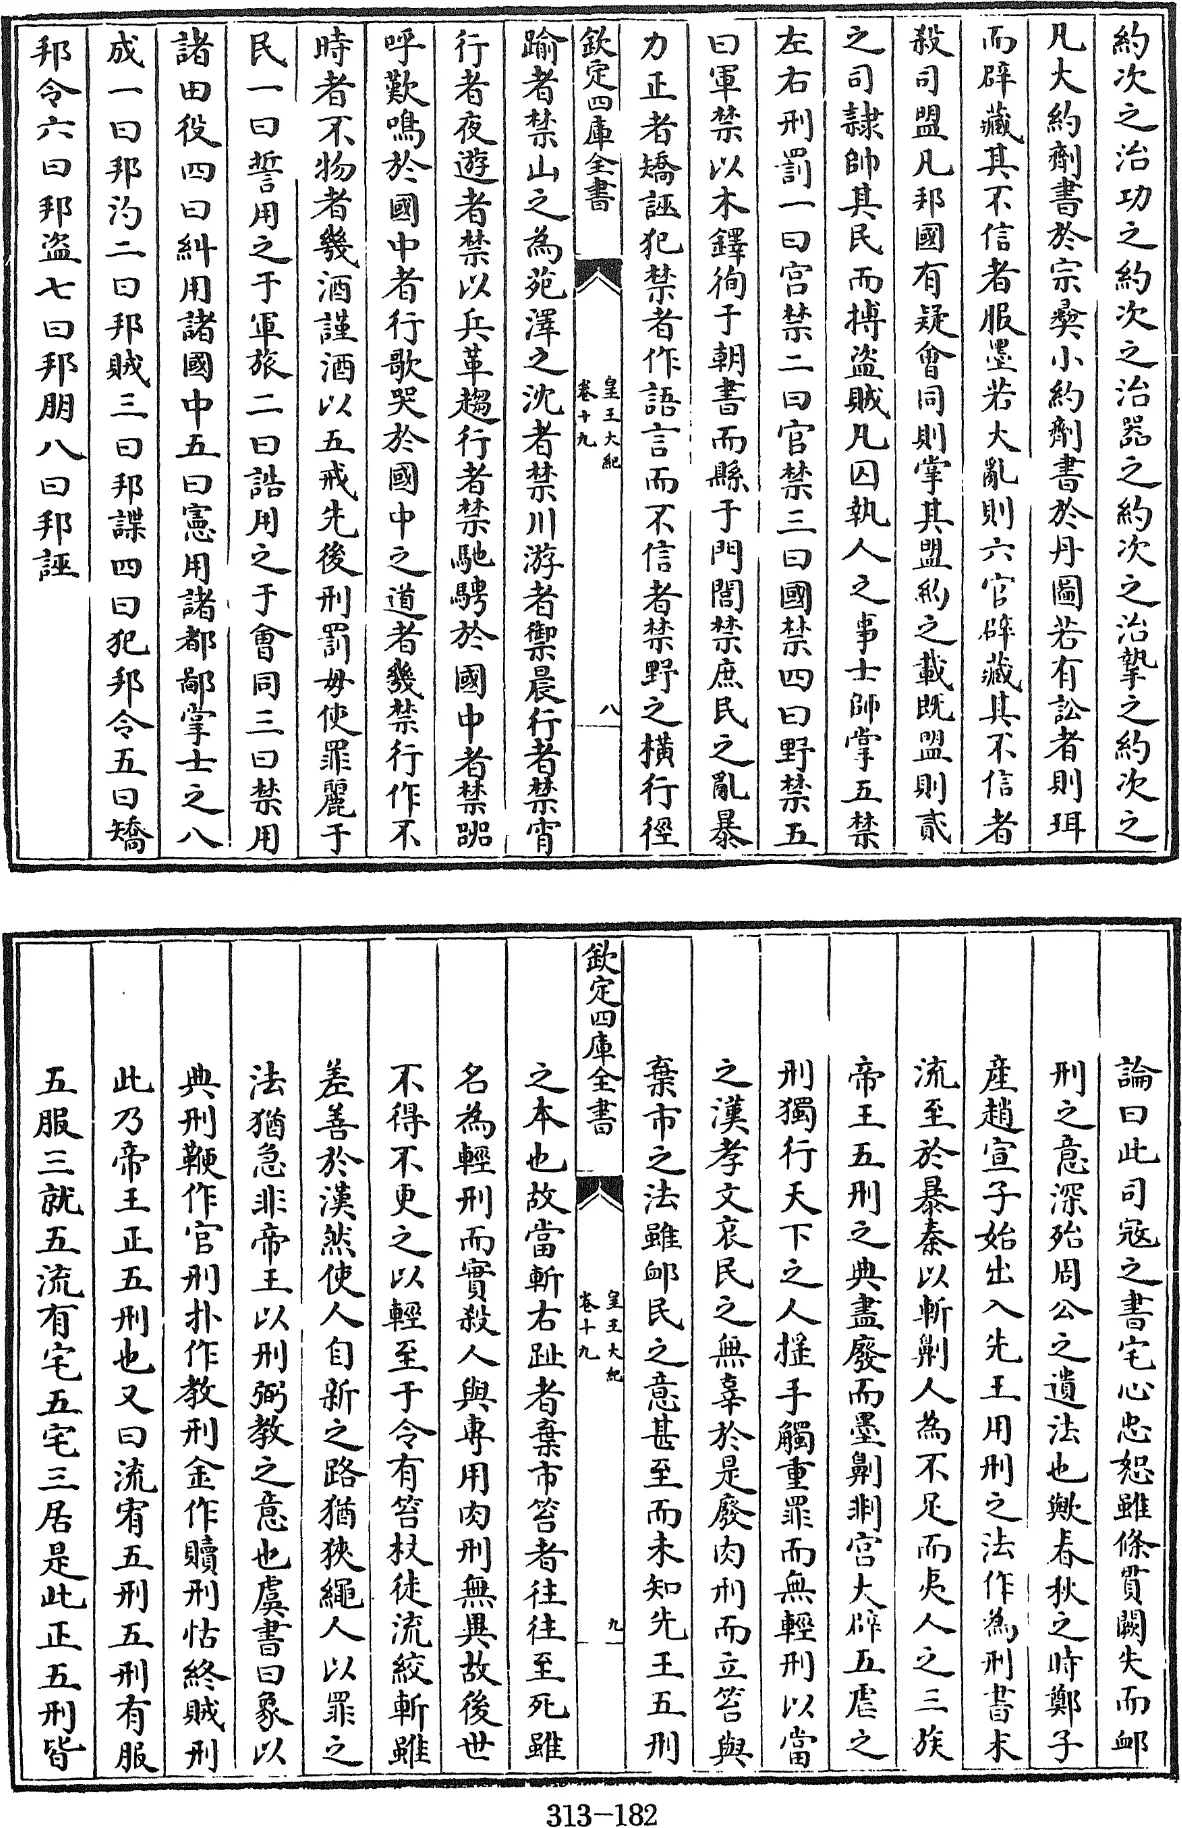 約次之治功之約次之治器之約次之治摯之約次之
凡大約劑書於宗彝小約劑書於丹圖若有訟者則珥
而辟藏其不信者服墨若大亂則六官辟藏其不信者
殺司盟凡邦國有疑會同則掌其盟約之載既盟則貳
之司隷帥其民而搏盜賊凡囚執人之事士師掌五禁
左右刑罰一曰宫禁二曰官禁三曰國禁四曰野禁五
曰軍禁以木鐸徇于朝書而縣于門閭禁庶民之亂暴
力正者矯誣犯禁者作語言而不信者禁野之横行徑
欽定四庫全書
皇王大紀
卷十九
八
踰者禁山之為苑澤之沈者禁川游者禦晨行者禁宵
行者夜遊者禁以兵革趨行者禁馳騁於國中者禁嘂
呼歎鳴於國中者行歌哭於國中之道者幾禁行作不
時者不物者幾酒謹酒以五戒先後刑罰毋使罪麗于
民一曰誓用之于軍旅二曰誥用之于會同三曰禁用
諸田役四曰糾用諸國中五曰憲用諸都鄙掌士之八
成一曰邦汋二曰邦賊三曰邦諜四曰犯邦令五曰矯
邦令六曰邦盜七曰邦朋八曰邦誣
論曰此司宼之書宅心忠恕雖條貫闕失而䘏
刑之意深殆周公之遺法也歟春秋之時鄭子
産趙宣子始出入先王用刑之法作為刑書末
流至於暴秦以斬劓人為不足而夷人之三族
帝王五刑之典盡廢而墨劓剕宫大辟五虐之
刑獨行天下之人揺手觸重罪而無輕刑以當
之漢孝文哀民之無辜於是廢肉刑而立笞與
棄市之法雖䘏民之意甚至而未知先王五刑
欽定四庫全書
皇王大紀
卷十九
九
之本也故當斬右趾者棄市笞者往往至死雖
名為輕刑而實殺人與專用肉刑無異故後世
不得不更之以輕至于今有笞杖徒流絞斬雖
差善於漢然使人自新之路猶狹繩人以罪之
法猶急非帝王以刑弼教之意也虞書曰象以
典刑鞭作官刑扑作教刑金作贖刑怙終賊刑
此乃帝王正五刑也又曰流宥五刑五刑有服
五服三就五流有宅五宅三居是此正五刑皆
313-182